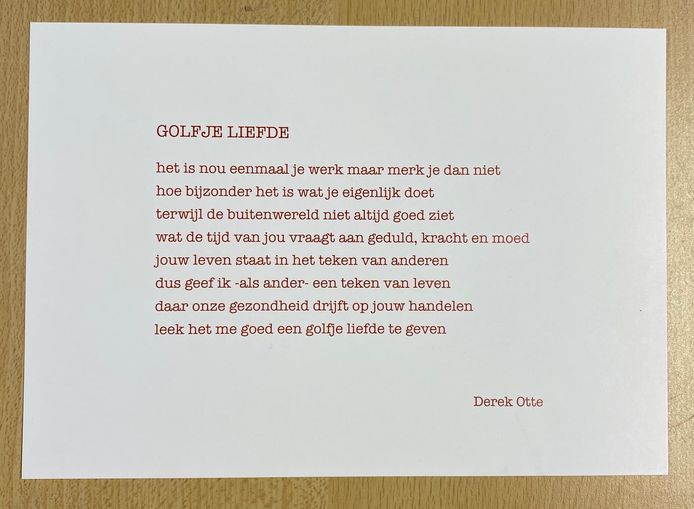 GOLFJE LIEFDE
het is nou eenmaal je werk maar merk je dan niet
hoe bijzonder het is wat je eigenlijk doet
terwijl de buitenwereld niet altijd goed ziet
wat de tijd van jou vraagt aan geduld, kracht en moed
jouw leven staat in het teken van anderen
dus geef ik -als ander- een teken van leven
daar onze gezondheid drijft op jouw handelen
leek het me goed een golfje liefde te geven
Derek Otte